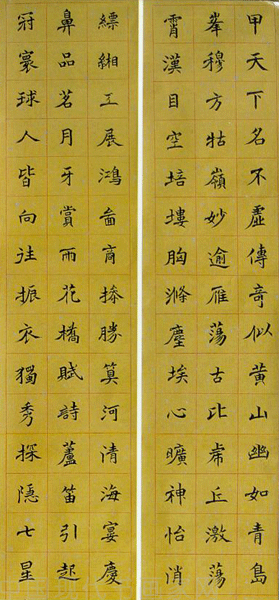 甲天下名不虛傳奇似黃山幽如青島
峯穆方牯嶺妙逾雁蕩古比虎丘激蕩
霄漢目空培塿胸滌塵埃心曠神怡消
縹緗工展鴻啚商操勝算河清海宴慶
鼻品茗月牙賞雨花橋賦詩蘆笛引起
冠寰球人皆向往振衣獨秀探隱七星